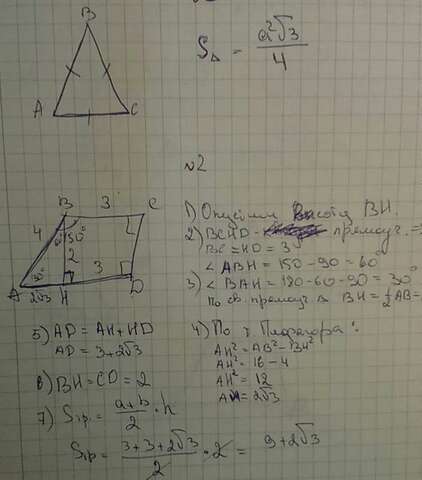 B
A C
S△ = a²√3 / 4
№2
B 3 C
4 60° 150°
2
3
A 30° 2√3 H D
1) Опустим высоту BH.
2) BCHD - прямоуг. =>
BC = HD = 3
∠ABH = 150 - 90 = 60°
3) ∠BAH = 180 - 60 - 90 = 30°
По св. прямоуг. △ BH = ½AB =
4) По т. Пифагора:
AH² = AB² - BH²
AH² = 16 - 4
AH² = 12
AH = 2√3
5) AD = AH + HD
AD = 3 + 2√3
6) BH = CD = 2
7) Sтр = a+b / 2 · h
Sтр = 3+3+2√3 / 2 · 2 = 9+2√3